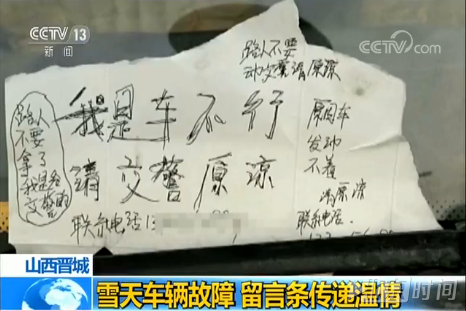 CCTV 13
新闻
CCTV.com
路人不要
动交警请原谅
路人
不要
拿了
我是给
交警的
我是车不行
请交警原谅
联系电话13
周围车
发动
不着
请原谅
联系电话
山西晋城
雪天车辆故障 留言条传递温情
时间